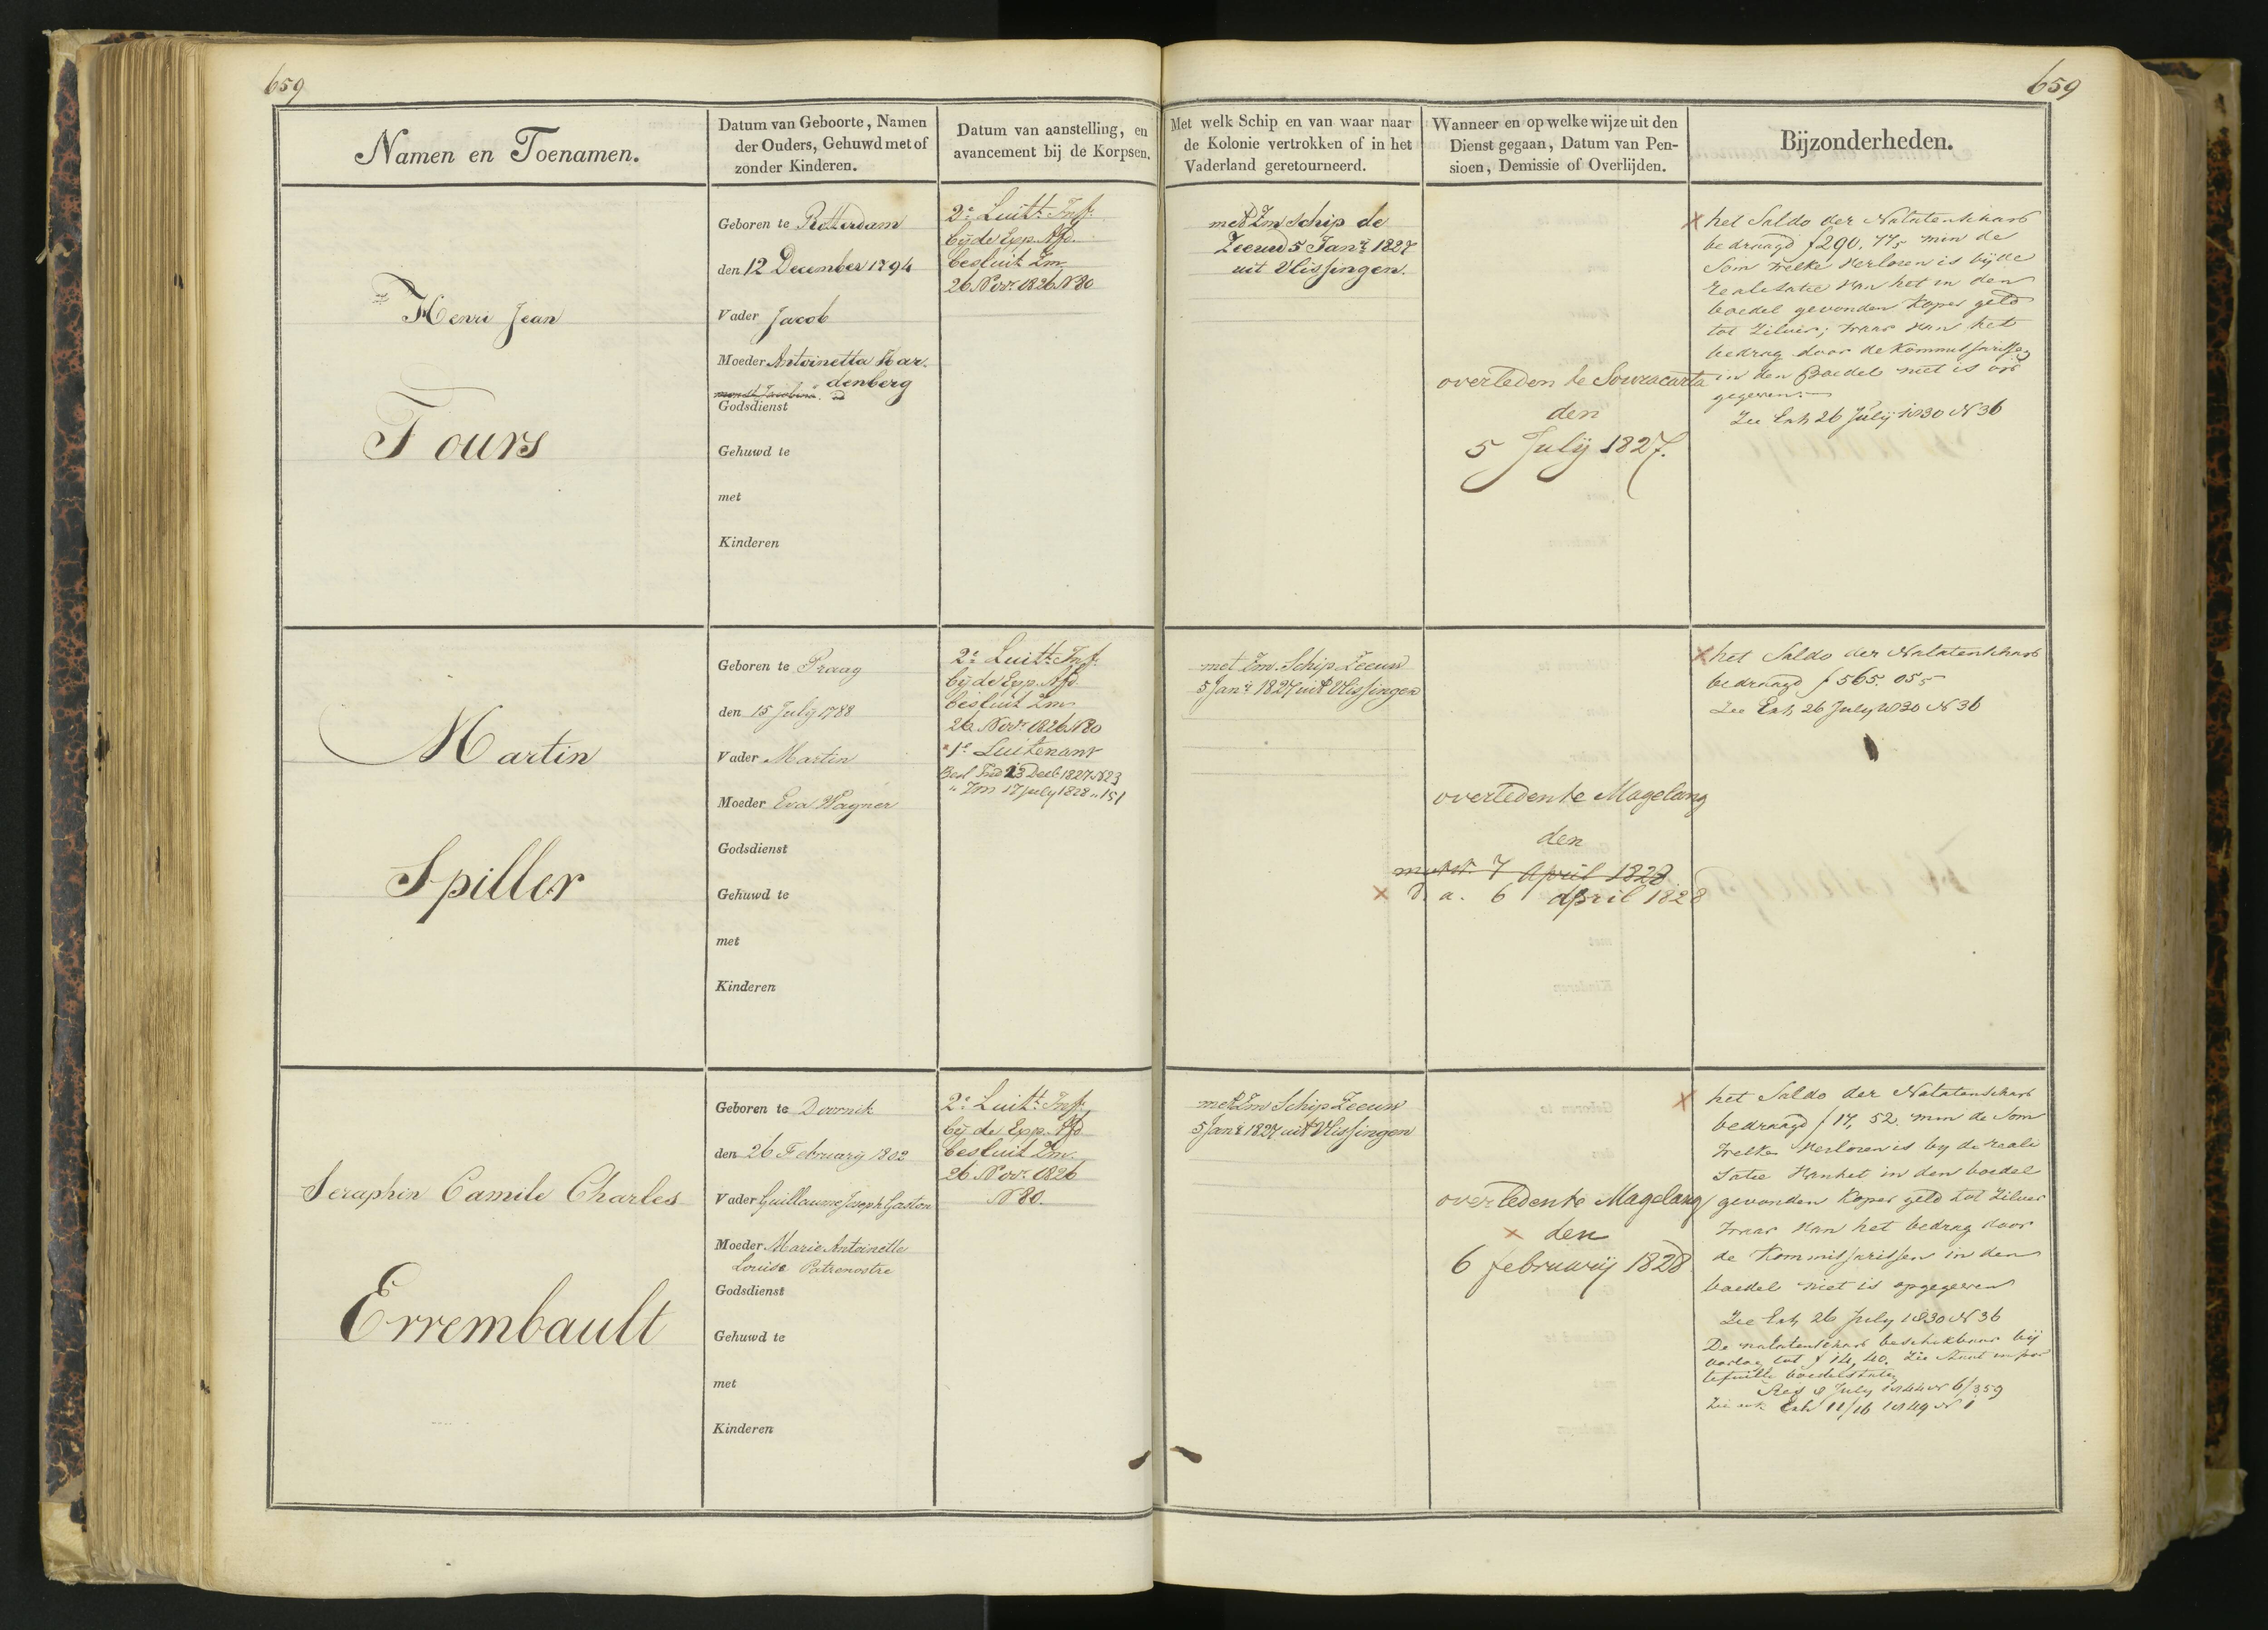 659
659
Namen en Toenamen.
Datum van Geboorte, Namen
der Ouders, Gehuwd met of
zonder Kinderen.
Datum van aanstelling, en
avancement bij de Korpsen.
Met welk Schip en van waar naar
de Kolonie vertrokken of in het
Vaderland geretourneerd.
Wanneer en op welke wijze uit den
Dienst gegaan, Datum van Pen-
sioen, Demissie of Overlijden.
Bijzonderheden.
Henri Jean
Tours
Geboren te Rotterdam
den 12 December 1794
Vader Jacob
Moeder Antoinetta Har.
denberg
Godsdienst
Gehuwd te
met
Kinderen
2e Luitt. Inf.
bij de Exp. Afd.
besluit Zm.
26 Nov. 1826 N 80
met Zm schip de
Zeeuw 5 Jan. 1827
uit Vlissingen.
overleden te Souracarta
den
5 Julij 1827.
het Saldo der Nalatenschap
bedraagd f 290.775 min de
Som welke verloren is bij de
realisatie van het in den
boedel gevonden koper geld
tot zilver; waar van het
bedrag door de Kommissarissen
in den Boedel niet is op
gegeven.
Zie Exh 26 Julij 1830 N 36
Martin
Spiller
Geboren te Praag
den 15 July 1788
Vader Martin
Moeder Eva Wagner
Godsdienst
Gehuwd te
met
Kinderen
2e Luitt. Inf.
bij de Exp. Afd.
besluit Zm.
26 Nov. 1826 N 80
1e Luitenant
Besl Ind 23 Decb 1827 N 23
" Zm 17 july 1828 " 151
met Zm. Schip Zeeuw
5 Jan. 1827 uit Vlissingen
overleden te Magelang
den
7 April 1828
d. a. 6 april 1828
het Saldo der Nalatenschap
bedraagd f 565.055
Zie Exh 26 July 1830 N 36
Seraphin Camile Charles
Errembault
Geboren te Doornik
den 26 February 1802
Vader Guillaume Joseph Gaston
Moeder Marie Antoinette
Louise Patrenostre
Godsdienst
Gehuwd te
met
Kinderen
2e Luitt. Inf.
bij de Exp. Afd
besluit Zm.
26 Nov. 1826
N 80.
met Zm Schip Zeeuw
5 Jan. 1827 uit Vlissingen
overleden te Magelang
den
6 februarij 1828
het Saldo der Nalatenschap
bedraagd f 17,52. min de Som
welke verloren is by de reali
satie van het in den boedel
gevonden koper geld tot zilver
waar van het bedrag door
de Kommissarissen in den
boedel niet is opgegeven
Zie Exh 26 July 1830 N 36
De nalatenschap beschikbaar bij
tot f 14,40. Zie Staat in por
tefuille boedelstaten
Res 8 July 1844 N 6/359
Zie ook Exh 11/16 1849 N 1